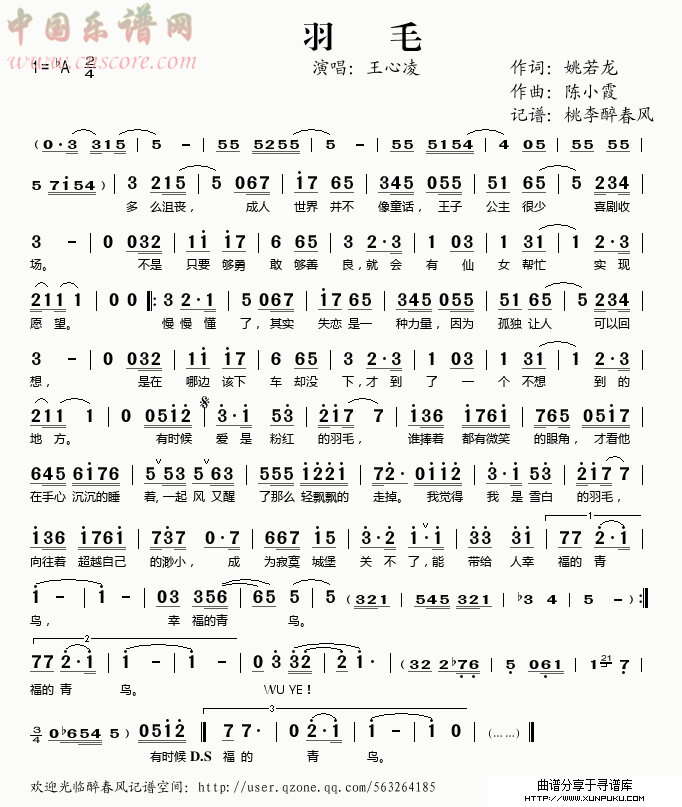 中国乐谱网
www.cnscore.com
羽 毛
1=♭A 2/4
演唱：王心凌
作词：姚若龙
作曲：陈小霞
记谱：桃李醉春风
(0·3 315 | 5 - | 55 5255 | 5 - | 55 5154 | 4 05 | 55 55
5 7i54) | 3 215 | 5 067 | i7 65 | 345 055 | 51 65 | 5 234
多 么沮丧， 成人 世界 并不 像童话， 王子 公主 很少 喜剧收
3 - | 0 032 | 1i i7 | 6 65 | 3 2·3 | 1 03 | 1 31 | 1 2·3
场。 不是 只要 够勇 敢 够善 良，就 会 有 仙 女 帮忙 实 现
211 1 | 0 0 |: 3 2·1 | 5 067 | i7 65 | 345 055 | 51 65 | 5 234
愿 望。 慢 慢 懂 了，其实 失恋 是一 种力量，因为 孤独 让人 可以回
3 - | 0 032 | 1i i7 | 6 65 | 3 2·3 | 1 03 | 1 31 | 1 2·3
想， 是在 哪边 该下 车 却没 下，才 到 了 一 个 不想 到 的
211 1 | 0 05i2 | 3·i 53 | 2i7 7 | i36 i76i | 765 05i7
地 方。 有时候 爱 是 粉红 的羽毛， 谁捧着 都有微笑 的眼角，才看他
645 6i76 | 5 53 5 63 | 555 i22i | 72· 0i2 | 3·i 53 | 2i7 7
在手心 沉沉的睡 着，一起 风 又醒 了那么 轻飘飘的 走掉。 我觉得 我 是 雪白 的羽毛，
i36 i76i | 737 0·7 | 667 15 | 3·2 i·i | 33 31 | 77 2·i
向往着 超越自己 的渺小， 成 为寂寞 城堡 关 不 了，能 带给 人幸 福的 青
i - | i - | 03 356 | 65 5 | 5 (321 | 545 321 | ♭3 4 | 5 - :|
鸟， 幸 福的青 鸟。
77 2·i | i - | i - | 0 3 32 | 2 i· | (32 2♭76 | 5 061 | 1 7
福的 青 鸟。 WU YE！
3/4 0♭654 5) | 05i2 | 7 7· | 0 2·i | i - | i 0 | (……) |
有时候 D.S 福 的 青 鸟。
欢迎光临醉春风记谱空间：http://user.qzone.qq.com/563264185
曲谱分享于寻谱库
HTTP://WWW.XUNPUKU.COM